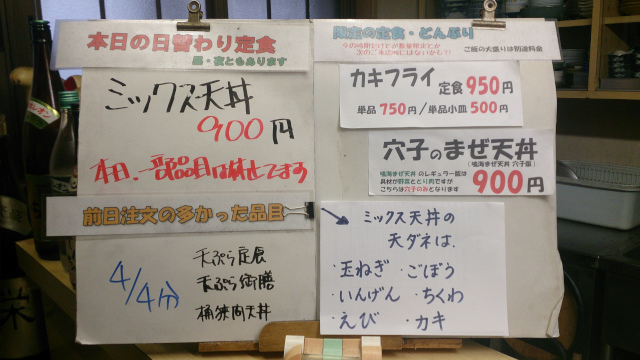 本日の日替わり定食
昼・夜ともあります
ミックス天丼
900円
本日、一部品目は休止してます
前日注文の多かった品目
4/4分
天ぷら定食
天ぷら御膳
桶狭間天丼
限定の定食・どんぶり
ご飯の大盛りは別途料金
カキフライ 定食 950円
単品 750円/単品小皿 500円
穴子のまぜ天丼
(鳴海まぜ天丼 穴子版)
鳴海まぜ天丼 のレギュラー版は
具材が野菜ととり肉ですが
こちらは穴子のみとなります
900円
ミックス天丼の
天ダネは、
・玉ねぎ ・ごぼう
・いんげん ・ちくわ
・えび ・カキ